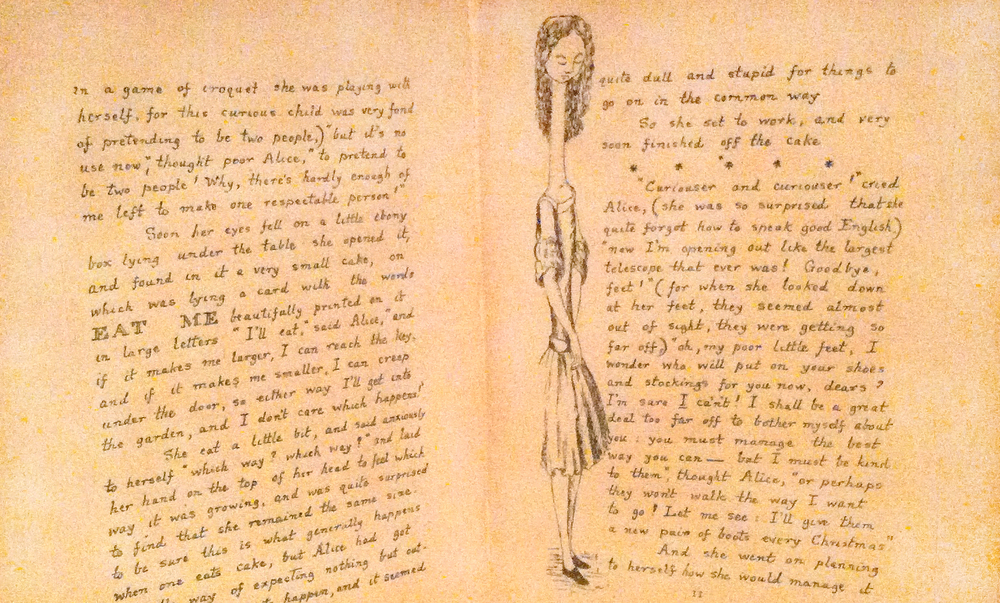 in a game of croquet she was playing with
herself, for this curious child was very fond
of pretending to be two people,) "but it's no
use now", thought poor Alice, "to pretend to
be two people! Why, there's hardly enough of
me left to make one respectable person!"
Soon her eyes fell on a little ebony
box lying under the table she opened it,
and found in it a very small cake, on
which was lying a card with the words
EAT ME beautifully printed on it
in large letters "I'll eat," said Alice, "and
if it makes me larger, I can reach the key,
and if it makes me smaller, I can creep
under the door, so either way I'll get into
the garden, and I don't care which happens!"
She eat a little bit, and said anxiously
to herself "which way? which way?" and laid
her hand on the top of her head to feel which
way it was growing, and was quite surprised
to find that she remained the same size.
to be sure this is what generally happens
when one eats cake, but Alice had got
way of expecting nothing but out-
happen, and it seemed
quite dull and stupid for things to
go on in the common way
So she set to work, and very
soon finished off the cake
* * * * *
"Curiouser and curiouser!" cried
Alice, (she was so surprised that she
quite forgot how to speak good English)
"now I'm opening out like the largest
telescope that ever was! Goodbye,
feet!" (for when she looked down
at her feet, they seemed almost
out of sight, they were getting so
far off,) "oh, my poor little feet, I
wonder who will put on your shoes
and stockings for you now, dears?
I'm sure I can't! I shall be a great
deal too far off to bother myself about
you: you must manage the best
way you can — but I must be kind
to them", thought Alice, "or perhaps
they won't walk the way I want
to go! Let me see: I'll give them
a new pair of boots every Christmas"
And she went on planning
to herself how she would manage it
11